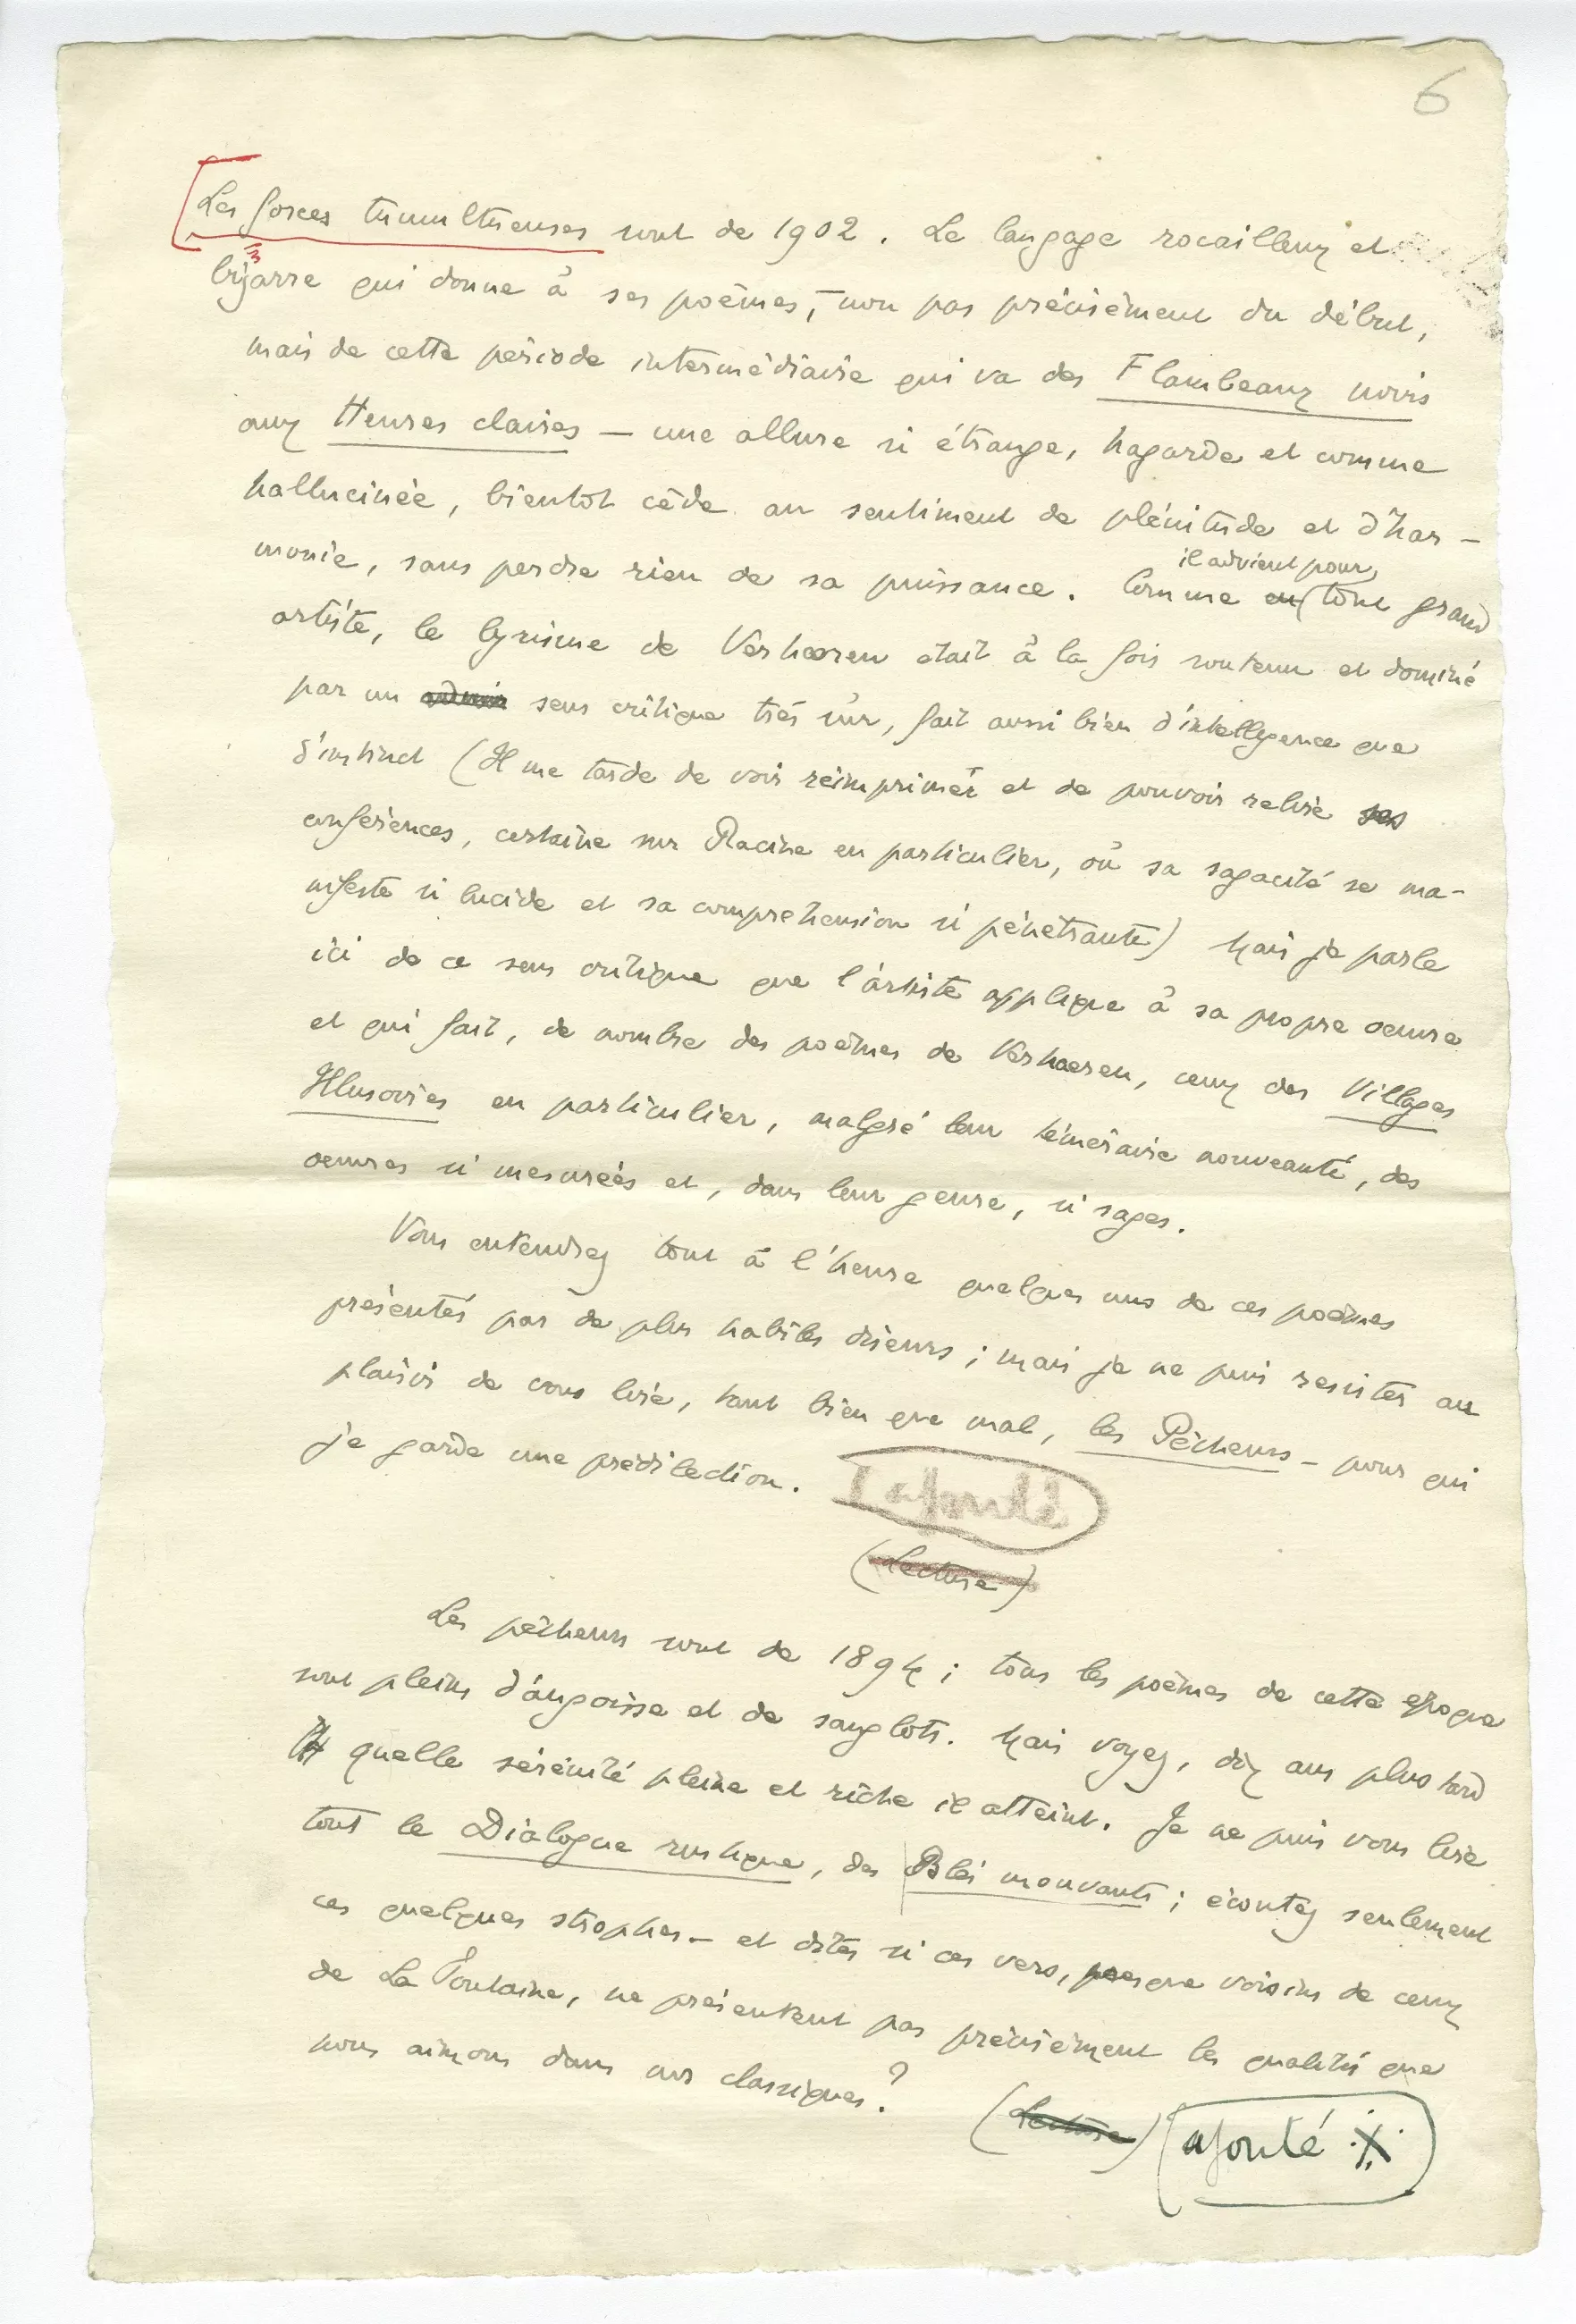 6
Les forces tumultueuses sont de 1902. Le langage rocailleux et
bizarre qui donne à ses poèmes, — non pas précisément du début,
mais de cette période intermédiaire qui va des Flambeaux noirs
aux Heures claires — une allure si étrange, hagarde et comme
hallucinée, bientôt cède au sentiment de plénitude et d'har-
monie, sans perdre rien de sa puissance. Comme il advient pour tout grand
artiste, le lyrisme de Verhaeren était à la fois soutenu et dominé
par un sens critique très sûr, fait aussi bien d'intelligence que
d'instinct (Il me tarde de voir réimprimer et de pouvoir relire ses
conférences, certaine sur Racine en particulier, où sa sagacité se ma-
nifeste si lucide et sa compréhension si pénétrante) Mais je parle
ici de ce sens critique que l'artiste applique à sa propre oeuvre
et qui fait, de nombre des poèmes de Verhaeren, ceux des Villages
Illusoires en particulier, malgré leur téméraire nouveauté, des
oeuvres si mesurées et, dans leur genre, si sages.
Vous entendrez tout à l'heure quelques uns de ces poèmes
présentés par de plus habiles diseurs ; mais je ne puis resister au
plaisir de vous lire, tant bien que mal, les Pêcheurs — pour qui
je garde une prédilection. ajouté
(Lecture)
Les pêcheurs sont de 1894 ; tous les poèmes de cette époque
sont pleins d'angoisse et de sanglots. Mais voyez, dix ans plus tard
à quelle sérénité pleine et riche il atteint. Je ne puis vous lire
tout le Dialogue rustique, des Blés mouvants ; écoutez seulement
ces quelques strophes — et dites si ces vers, presque voisins de ceux
de La Fontaine, ne présentent pas précisément les qualités que
nous aimons dans nos classiques ?
(Lecture) ajouté X